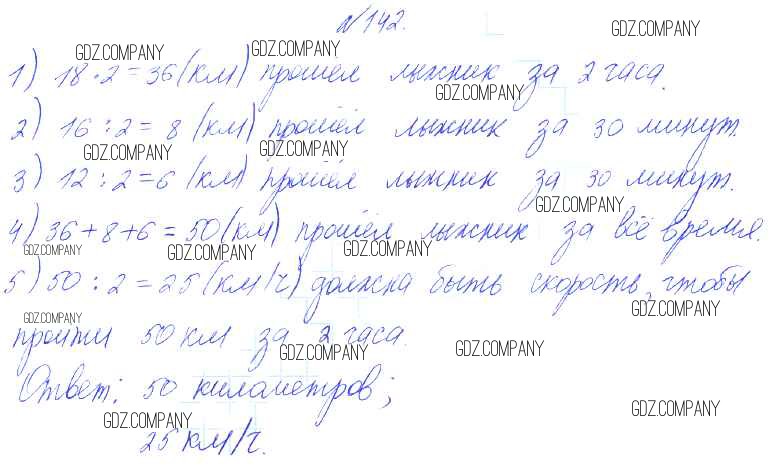 №142.
GDZ.COMPANY
GDZ.COMPANY GDZ.COMPANY
1) 18·2=36(км) прошёл лыжник за 2 часа.
GDZ.COMPANY
2) 16:2=8 (км) прошёл лыжник за 30 минут.
GDZ.COMPANY GDZ.COMPANY
3) 12:2=6 (км) прошёл лыжник за 30 минут.
GDZ.COMPANY
4) 36+8+6=50(км) прошёл лыжник за всё время.
GDZ.COMPANY GDZ.COMPANY GDZ.COMPANY
5) 50:2=25(км/ч) должна быть скорость, чтобы
GDZ.COMPANY GDZ.COMPANY
пройти 50 км за 2 часа.
GDZ.COMPANY GDZ.COMPANY
Ответ: 50 километров;
GDZ.COMPANY GDZ.COMPANY
25 км/ч.